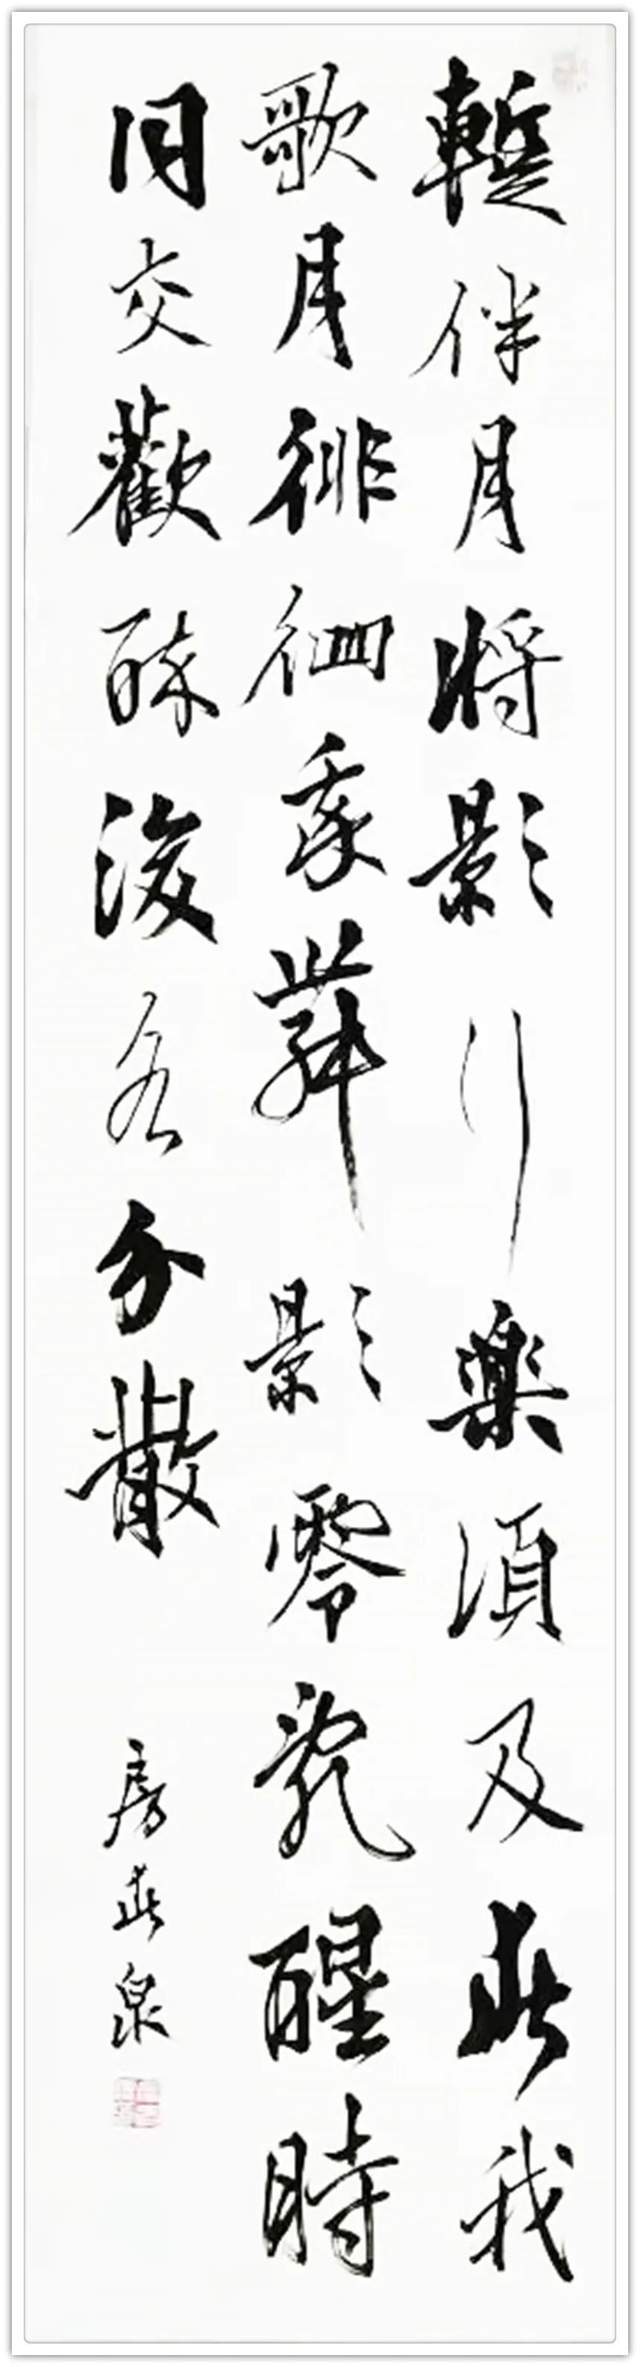 暫伴月將影行樂須及春我
歌月徘徊我舞影零亂醒時
同交歡醉後各分散
房春泉